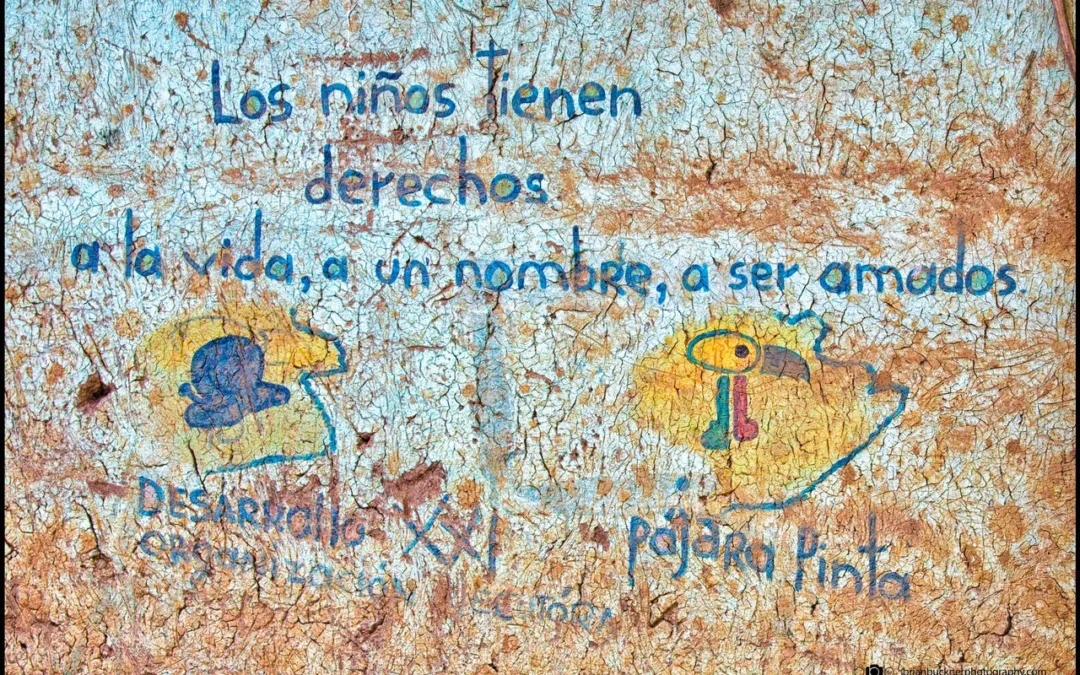 Los niños Tienen
derechos
a la vida, a un nombre, a ser amados.
DESARROllo XXI
ORGANIZACIÓN
PájaRa Pinta
brianbucknerphotography.com